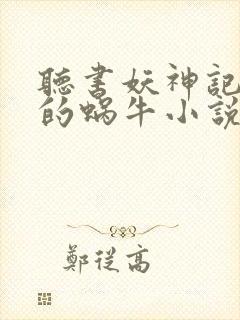 聽書妖神記
的蝸牛小說
鄭從高